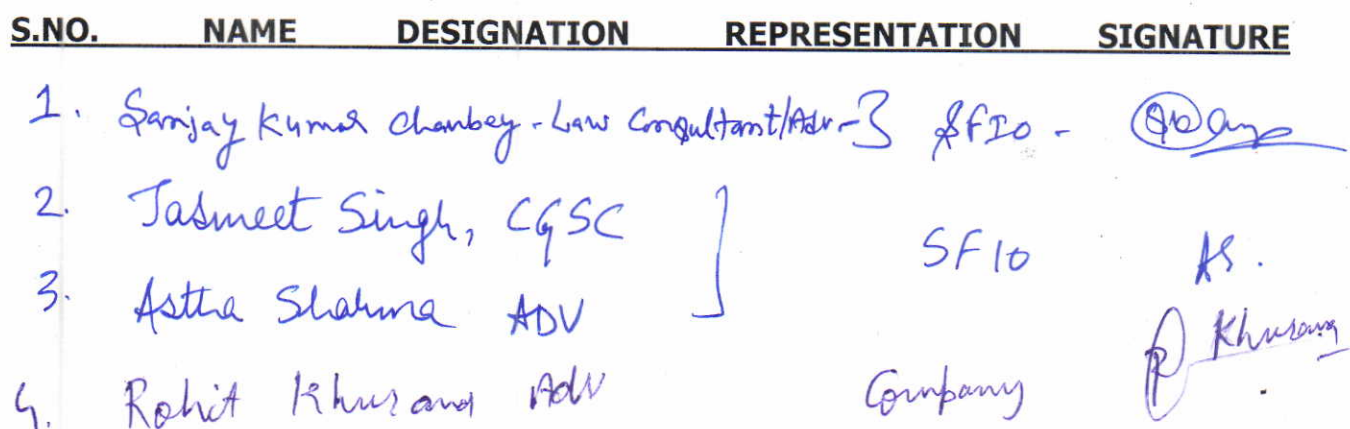 S.NO. NAME DESIGNATION REPRESENTATION SIGNATURE
1. Sanjay Kumar Chaubey - Law Consultant/Adv - } SFIO -
2. Jasmeet Singh, CGSC
SFIO AS.
3. Astha Sharma ADV
4. Rohit Khurana Adv Company R Khurana